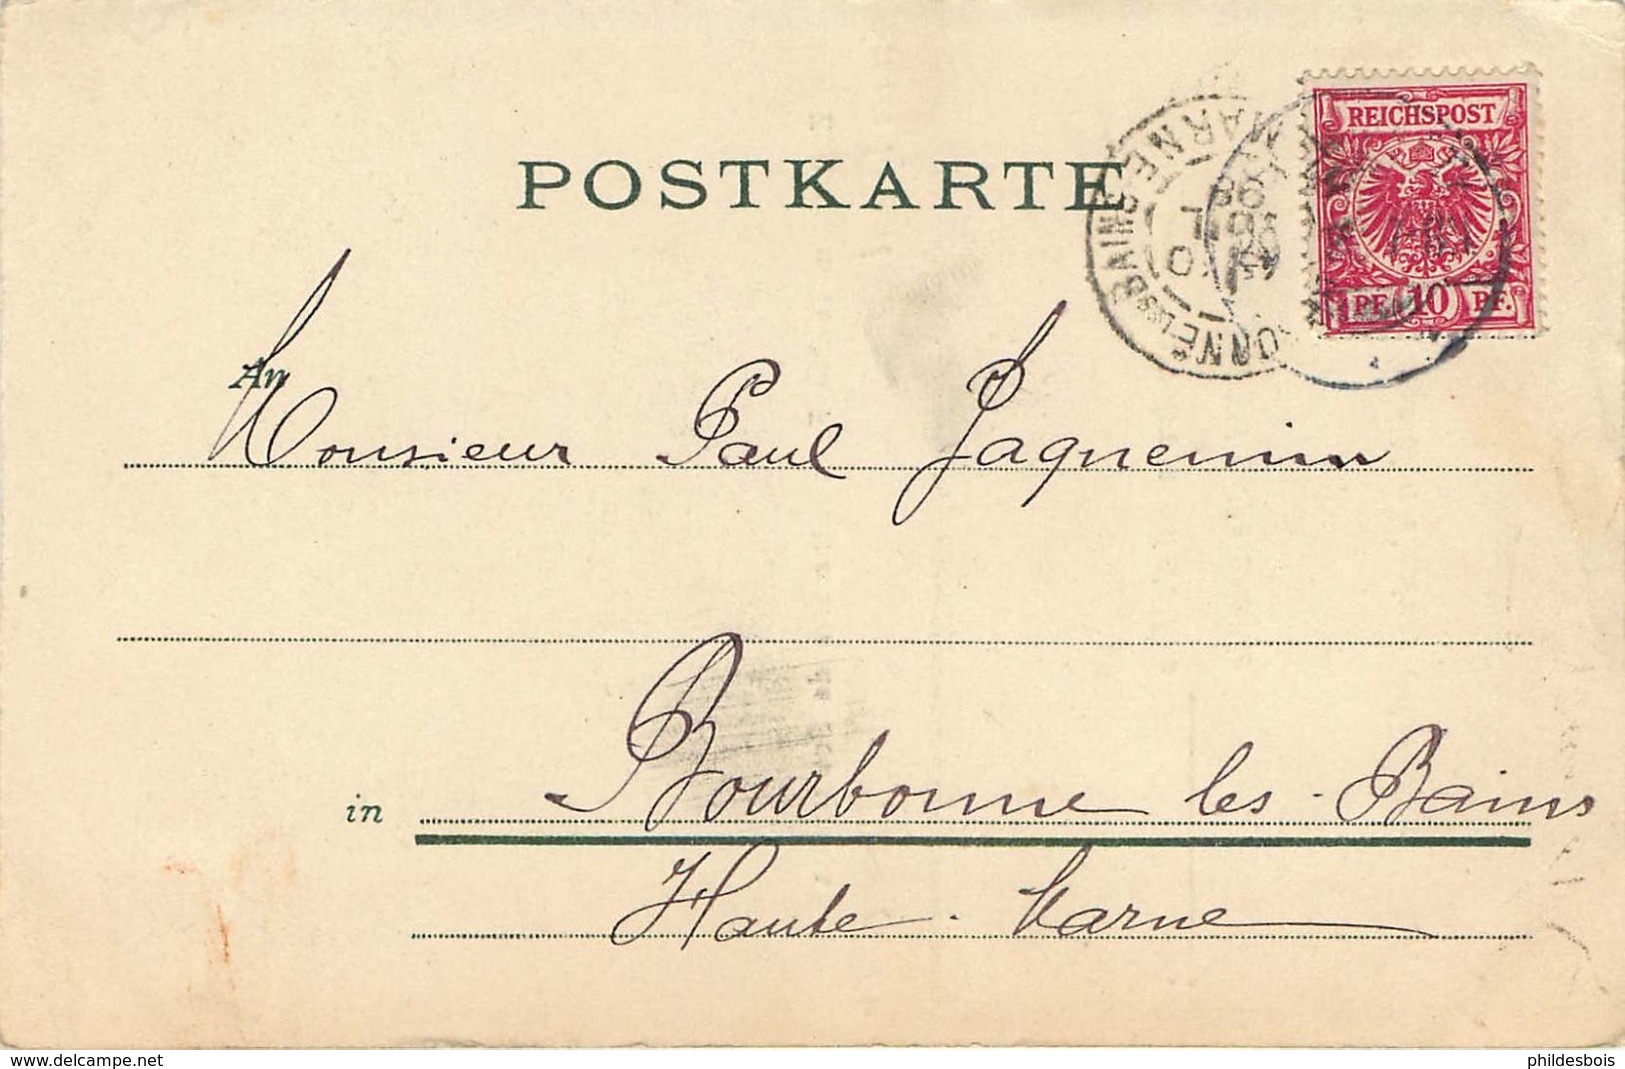 REICHSPOST
PF. 10 PF.
POSTKARTE
BOURBONNE LES BAINS
MARNE
98
An
Monsieur Paul Jaquemin
in
Bourbonne les-Bains
Haute-Marne
www.delcampe.net
phildesbois